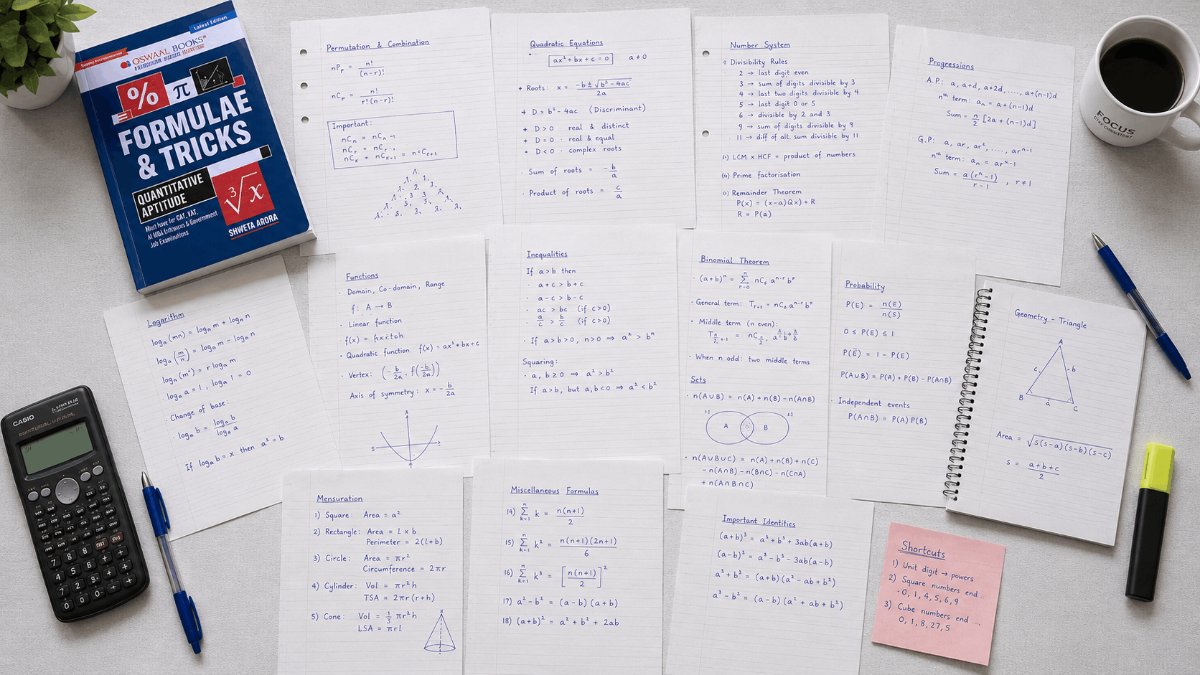 Latest Edition
OSWAAL BOOKS®
% π
FORMULAE
& TRICKS
QUANTITATIVE
APTITUDE
³√x
Must have for CAT, XAT,
Job Examinations
SHWETA ARORA
Permutation & Combination
nPr = n!/(n-r)!
nCr = n!/r!(n-r)!
Important:
Quadratic Equations
ax² + bx + c = 0 a ≠ 0
+ Roots: x = (-b ± √b² - 4ac)/2a
+ D = b² - 4ac (Discriminant)
+ D > 0 real & distinct
+ D = 0 real & equal
+ D < 0 complex roots
· Sum of roots = -b/a
· Product of roots = c/a
Number System
Divisibility Rules
2 → last digit even
3 → sum of digits divisible by 3
4 → last two digits divisible by 4
5 → last digit 0 or 5
6 → divisible by 2 and 3
9 → sum of digits divisible by 9
11 → diff of alt. sum divisible by 11
LCM x HCF = product of numbers
Prime factorisation
Remainder Theorem
P(x) = (x-a)Q(x) + R
R = P(a)
Progressions
A.P: a, a+d, a+2d, ...., a+(n-1)d
nth term: aₙ = a+(n-1)d
Sum = n/2 [2a + (n-1)d]
G.P: a, ar, ar², ....., arⁿ⁻¹
nth term: aₙ = arⁿ⁻¹
Sum = a(rⁿ-1)/r-1 , r ≠ 1
FOCUS
Logarithm
logₐ(mn) = logₐ m + logₐ n
logₐ(m/n) = logₐ m - logₐ n
logₐ(mʳ) = r logₐ m
logₐ a = 1, logₐ 1 = 0
Change of base:
If logₐ b = x then aˣ = b
Functions
· Domain, Co-domain, Range
f: A → B
· Linear function
· Quadratic function f(x) = ax² + bx + c
· Vertex: (-b/2a, f(-b/2a))
Axis of symmetry: x = -b/2a
Inequalities
If a > b then
· a + c > b + c
· a - c > b - c
· ac > bc (if c > 0)
· a/c > b/c (if c > 0)
· If a > b > 0, n > 0 ⇒ aⁿ > bⁿ
Squaring:
· a, b ≥ 0 ⇒ a² > b²
If a > b, but a, b < 0 ⇒ a² < b²
Binomial Theorem
· General term:
· Middle term (n even):
· When n odd: two middle terms
Sets
· n(A∪B) = n(A) + n(B) - n(A∩B)
A B
· n(A∪B∪C) = n(A) + n(B) + n(C)
- n(A∩B) - n(B∩C) - n(C∩A)
+ n(A∩B∩C)
Probability
P(E) = n(E)/n(S)
0 ≤ P(E) ≤ 1
P(E̅) = 1 - P(E)
P(A∪B) = P(A) + P(B) - P(A∩B)
· Independent events
P(A∩B) = P(A)P(B)
Geometry - Triangle
A
c b
B a C
Area = √s(s-a)(s-b)(s-c)
s = (a+b+c)/2
CASIO
Mensuration
1) Square: Area = a²
2) Rectangle: Area = l x b
Perimeter = 2(l+b)
3) Circle: Area = πr²
Circumference = 2πr
4) Cylinder: Vol = πr²h
TSA = 2πr(r+h)
5) Cone: Vol = 1/3 πr²h
LSA = πrl
Miscellaneous Formulas
14) Σ k = n(n+1)/2
15) Σ k² = n(n+1)(2n+1)/6
16) Σ k³ = [n(n+1)/2]²
17) a² - b² = (a-b)(a+b)
18) (a+b)² = a² + b² + 2ab
Important Identities
(a+b)³ = a³ + b³ + 3ab(a+b)
(a-b)³ = a³ - b³ - 3ab(a-b)
a³ + b³ = (a+b)(a² - ab + b²)
a³ - b³ = (a-b)(a² + ab + b²)
Shortcuts
1) Unit digit → powers
2) Square numbers end..
-0, 1, 4, 5, 6, 9
3) Cube numbers end ...
0, 1, 8, 27, 5